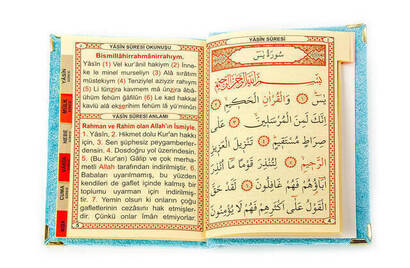 YÂSÎN SÛRESİ OKUNUŞU
Bismillâhirrahmânirrahym.
Yâsîn (1) Vel kur'ânil hakiym (2) İnne-
ke le minel murseliyn (3) Alâ sırâtım
müstekıym (4) Tenziylel aziyzir rahıym
(5) Li tünzira kavmem mâ ünzira âbâ-
ühüm fehüm ğâfilûn (6) Le kad hakkal
kavlü alâ ekserihim fehüm lâ yü'minûn
YÂSÎN SÛRESİ ANLAMI
Rahman ve Rahim olan Allah'ın İsmiyle.
1. Yâsîn, 2. Hikmet dolu Kur'an hakkı
için, 3. Sen şüphesiz peygamberler-
densin. 4. Dosdoğru yol üzerindesin.
5. (Bu Kur'an) Gâlip ve çok merha-
metli Allah tarafından indirilmiştir. 6.
Babaları uyarılmamış, bu yüzden
kendileri de gaflet içinde kalmış bir
toplumu uyarman için indirilmiş-
tir. 7. Yemin olsun ki onların çoğu
gafletlerinin cezasını hak etmişler-
dir. Çünkü onlar îman etmiyorlar.
YÂSÎN
MÜLK
NEBE
CUMA
YÂSÎN SÛRESİ
سُورَةُ يٰسٓ
بِسْمِ اللّٰهِ الرَّحْمٰنِ الرَّحِيمِ
يٰسٓ ﴿١﴾ وَالْقُرْاٰنِ الْحَكِيمِ ﴿٢﴾
اِنَّكَ لَمِنَ الْمُرْسَلِينَ ﴿٣﴾ عَلٰى
صِرَاطٍ مُسْتَقِيمٍ ﴿٤﴾ تَنْزِيلَ الْعَزِيزِ
الرَّحِيمِ ﴿٥﴾ لِتُنْذِرَ قَوْمًا مَٓا اُنْذِرَ
اٰبَٓاؤُهُمْ فَهُمْ غَافِلُونَ ﴿٦﴾ لَقَدْ حَقَّ
الْقَوْلُ عَلٰٓى اَكْثَرِهِمْ فَهُمْ لَا يُؤْمِنُونَ